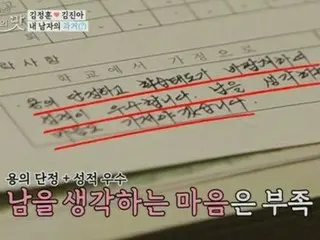 김정훈♥김진아
내 남자의 과거(?)
의 맛
락 사 항
학 교 에 서 가 정 으 로
용의 단정하고 학습태도가 바람직하며
성적이 우수합니다. 남을 생각하는
마음을 가져야 겠습니다.
용의 단정 + 성적 우수
남을 생각하는 마음은 부족